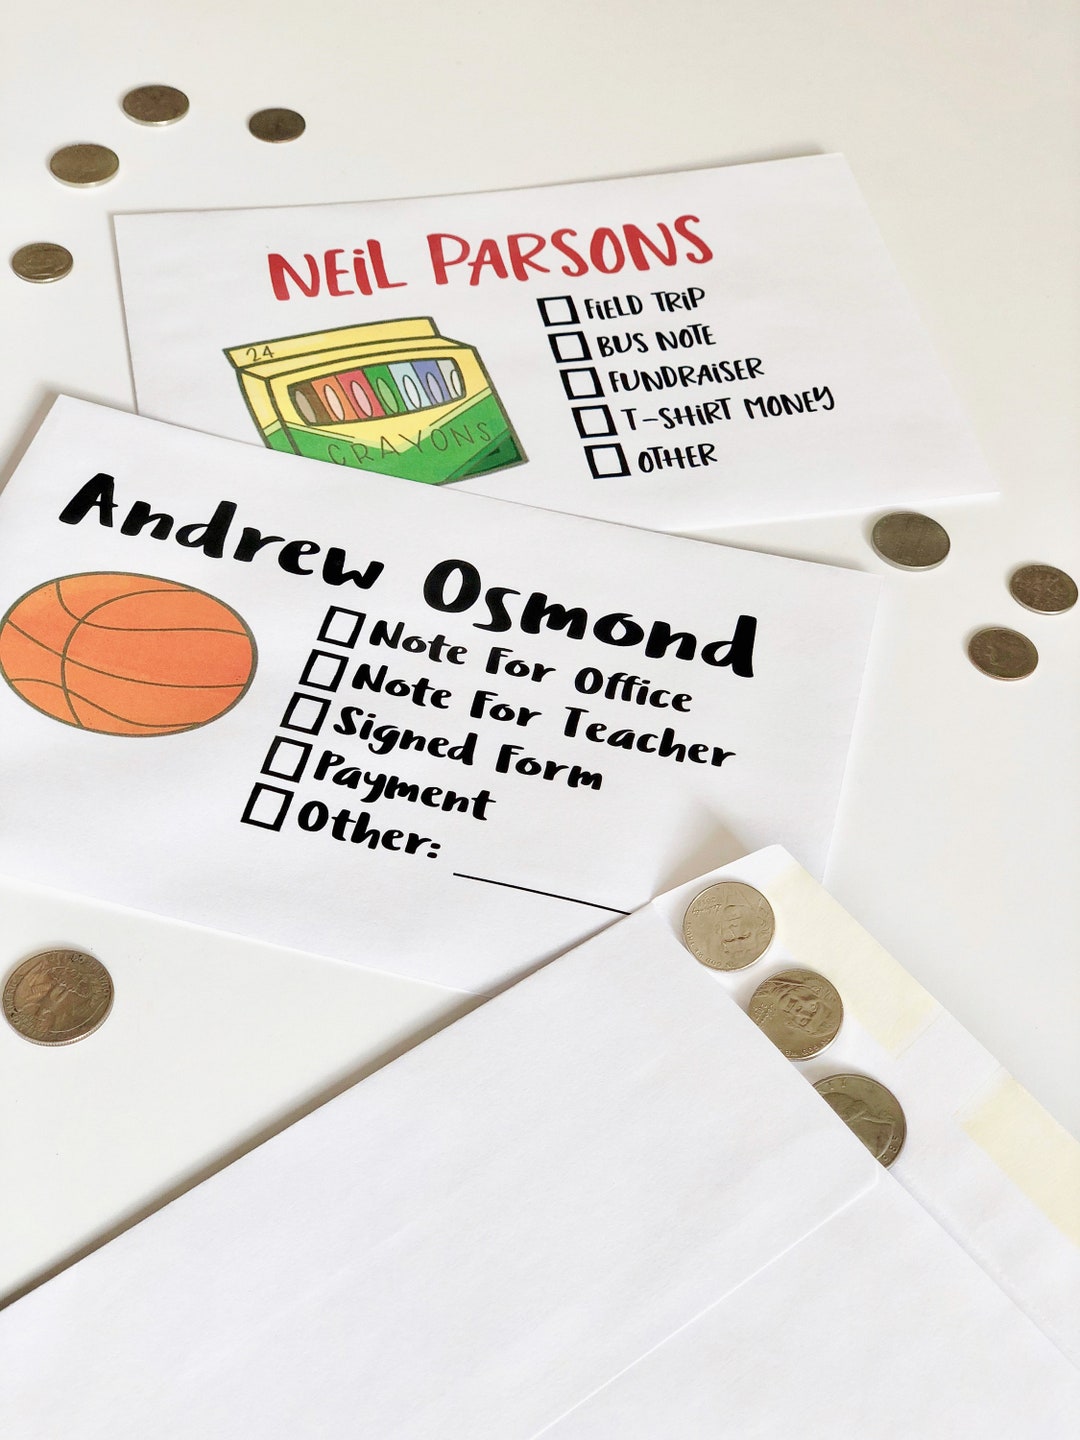 NEiL PARSONS
FiELD TRiP
BUS NOTE
FUNDRAiSER
T-SHiRT MONEY
OTHER
24
CRAYONS
Andrew Osmond
Note For Office
Note For Teacher
Signed Form
Payment
Other: